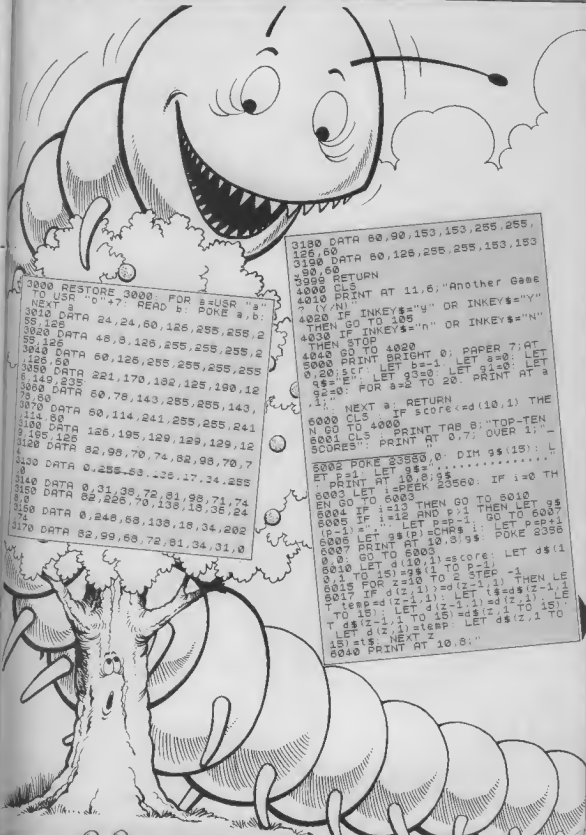 3000 RESTORE 3000: FOR a=USR "a"
TO USR "o"+7: READ b: POKE a,b:
NEXT a
3010 DATA 24,24,60,126,255,255,2
55,126
3020 DATA 48,8,126,255,255,255,2
55,126
3040 DATA 60,126,255,255,255,255
,126,60
3050 DATA 221,170,182,125,190,12
6,149,235
3060 DATA 60,78,143,255,255,143,
78,60
3070 DATA 60,114,241,255,255,241
,114,60
3100 DATA 126,195,129,129,129,12
9,195,126
3120 DATA 82,98,70,74,82,98,70,7
4
3130 DATA 0,255,
,0
3140 DATA 0,31,38,72,81,98,71,74
3150 DATA 82,226,70,138,18,36,24
8,0
3160 DATA 0,248,68,138,18,34,202
,74
3170 DATA 82,99,68,72,81,34,31,0
3180 DATA 60,90,153,153,255,255,
126,60
3190 DATA 60,126,255,255,153,153
,90,60
3999 RETURN
4000 CLS
4010 PRINT AT 11,6;"Another Game
? (Y/N)"
4020 IF INKEY$="y" OR INKEY$="Y"
THEN GO TO 105
4030 IF INKEY$="n" OR INKEY$="N"
THEN STOP
4040 GO TO 4020
5000 PRINT BRIGHT 0; PAPER 7;AT
0,20;scr: LET b=-1: LET a=0: LET
q$="E": LET g3=0: LET g1=0: LET
g2=0: FOR a=2 TO 20: PRINT AT a
,1; NEXT a: RETURN
6000 CLS : IF score<=d(10,1) THE
N GO TO 4000
6001 CLS : PRINT TAB 8;"TOP-TEN
SCORES": PRINT AT 0,7; OVER 1;"
6002 POKE 23560,0: DIM g$(15): L
ET p=1: LET g$="...............
": PRINT AT 10,8;g$
6003 LET i=PEEK 23560: IF i=0 TH
EN GO TO 6003
6004 IF i=13 THEN GO TO 6010
6005 IF i=12 AND p>1 THEN LET g$
(p-1)=".": LET p=p-1: GO TO 6007
6006 LET g$(p)=CHR$ i: LET p=p+1
6007 PRINT AT 10,8;g$: POKE 2356
0,0: GO TO 6003
6010 LET d(10,1)=score: LET d$(1
0,1 TO 15)=g$(1 TO p-1)
6015 FOR z=10 TO 2 STEP -1
6017 IF d(z,1)>=d(z-1,1) THEN LE
T temp=d(z,1): LET t$=d$(z,1
TO 15): LET d(z-1,1)=d(z,1): LE
T d$(z-1,1 TO 15)=d$(z,1 TO 15):
LET d(z,1)=temp: LET d$(z,1 TO
15)=t$: NEXT z
6040 PRINT AT 10,8;"